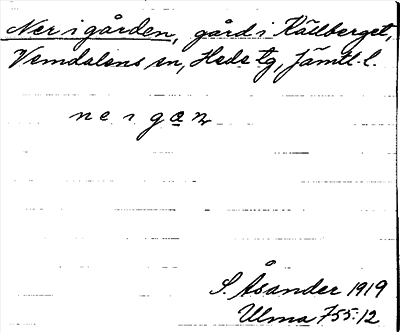 Ner i gården, gård i Källberget,
Vemdalens sn, Hede tg, Jämtl. l.
ne i gaṉ
S. Åsander 1919
Ulma 755:12